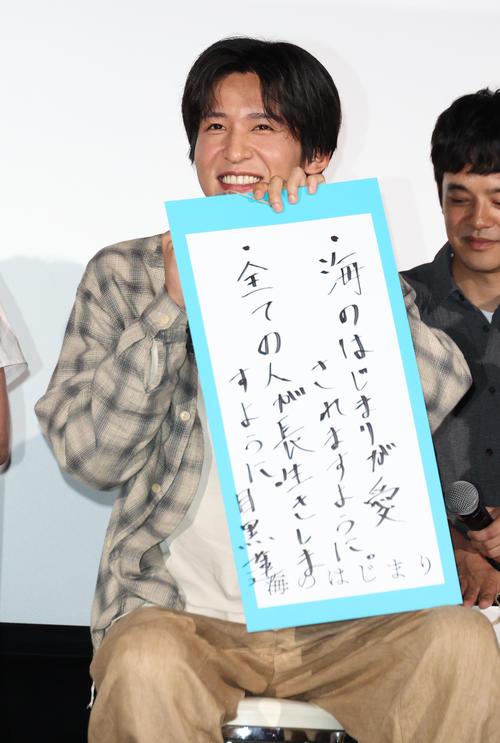 ・海のはじまりが愛
されますように。
・全ての人が長生きしま
すように 目黒蓮
海のはじまり